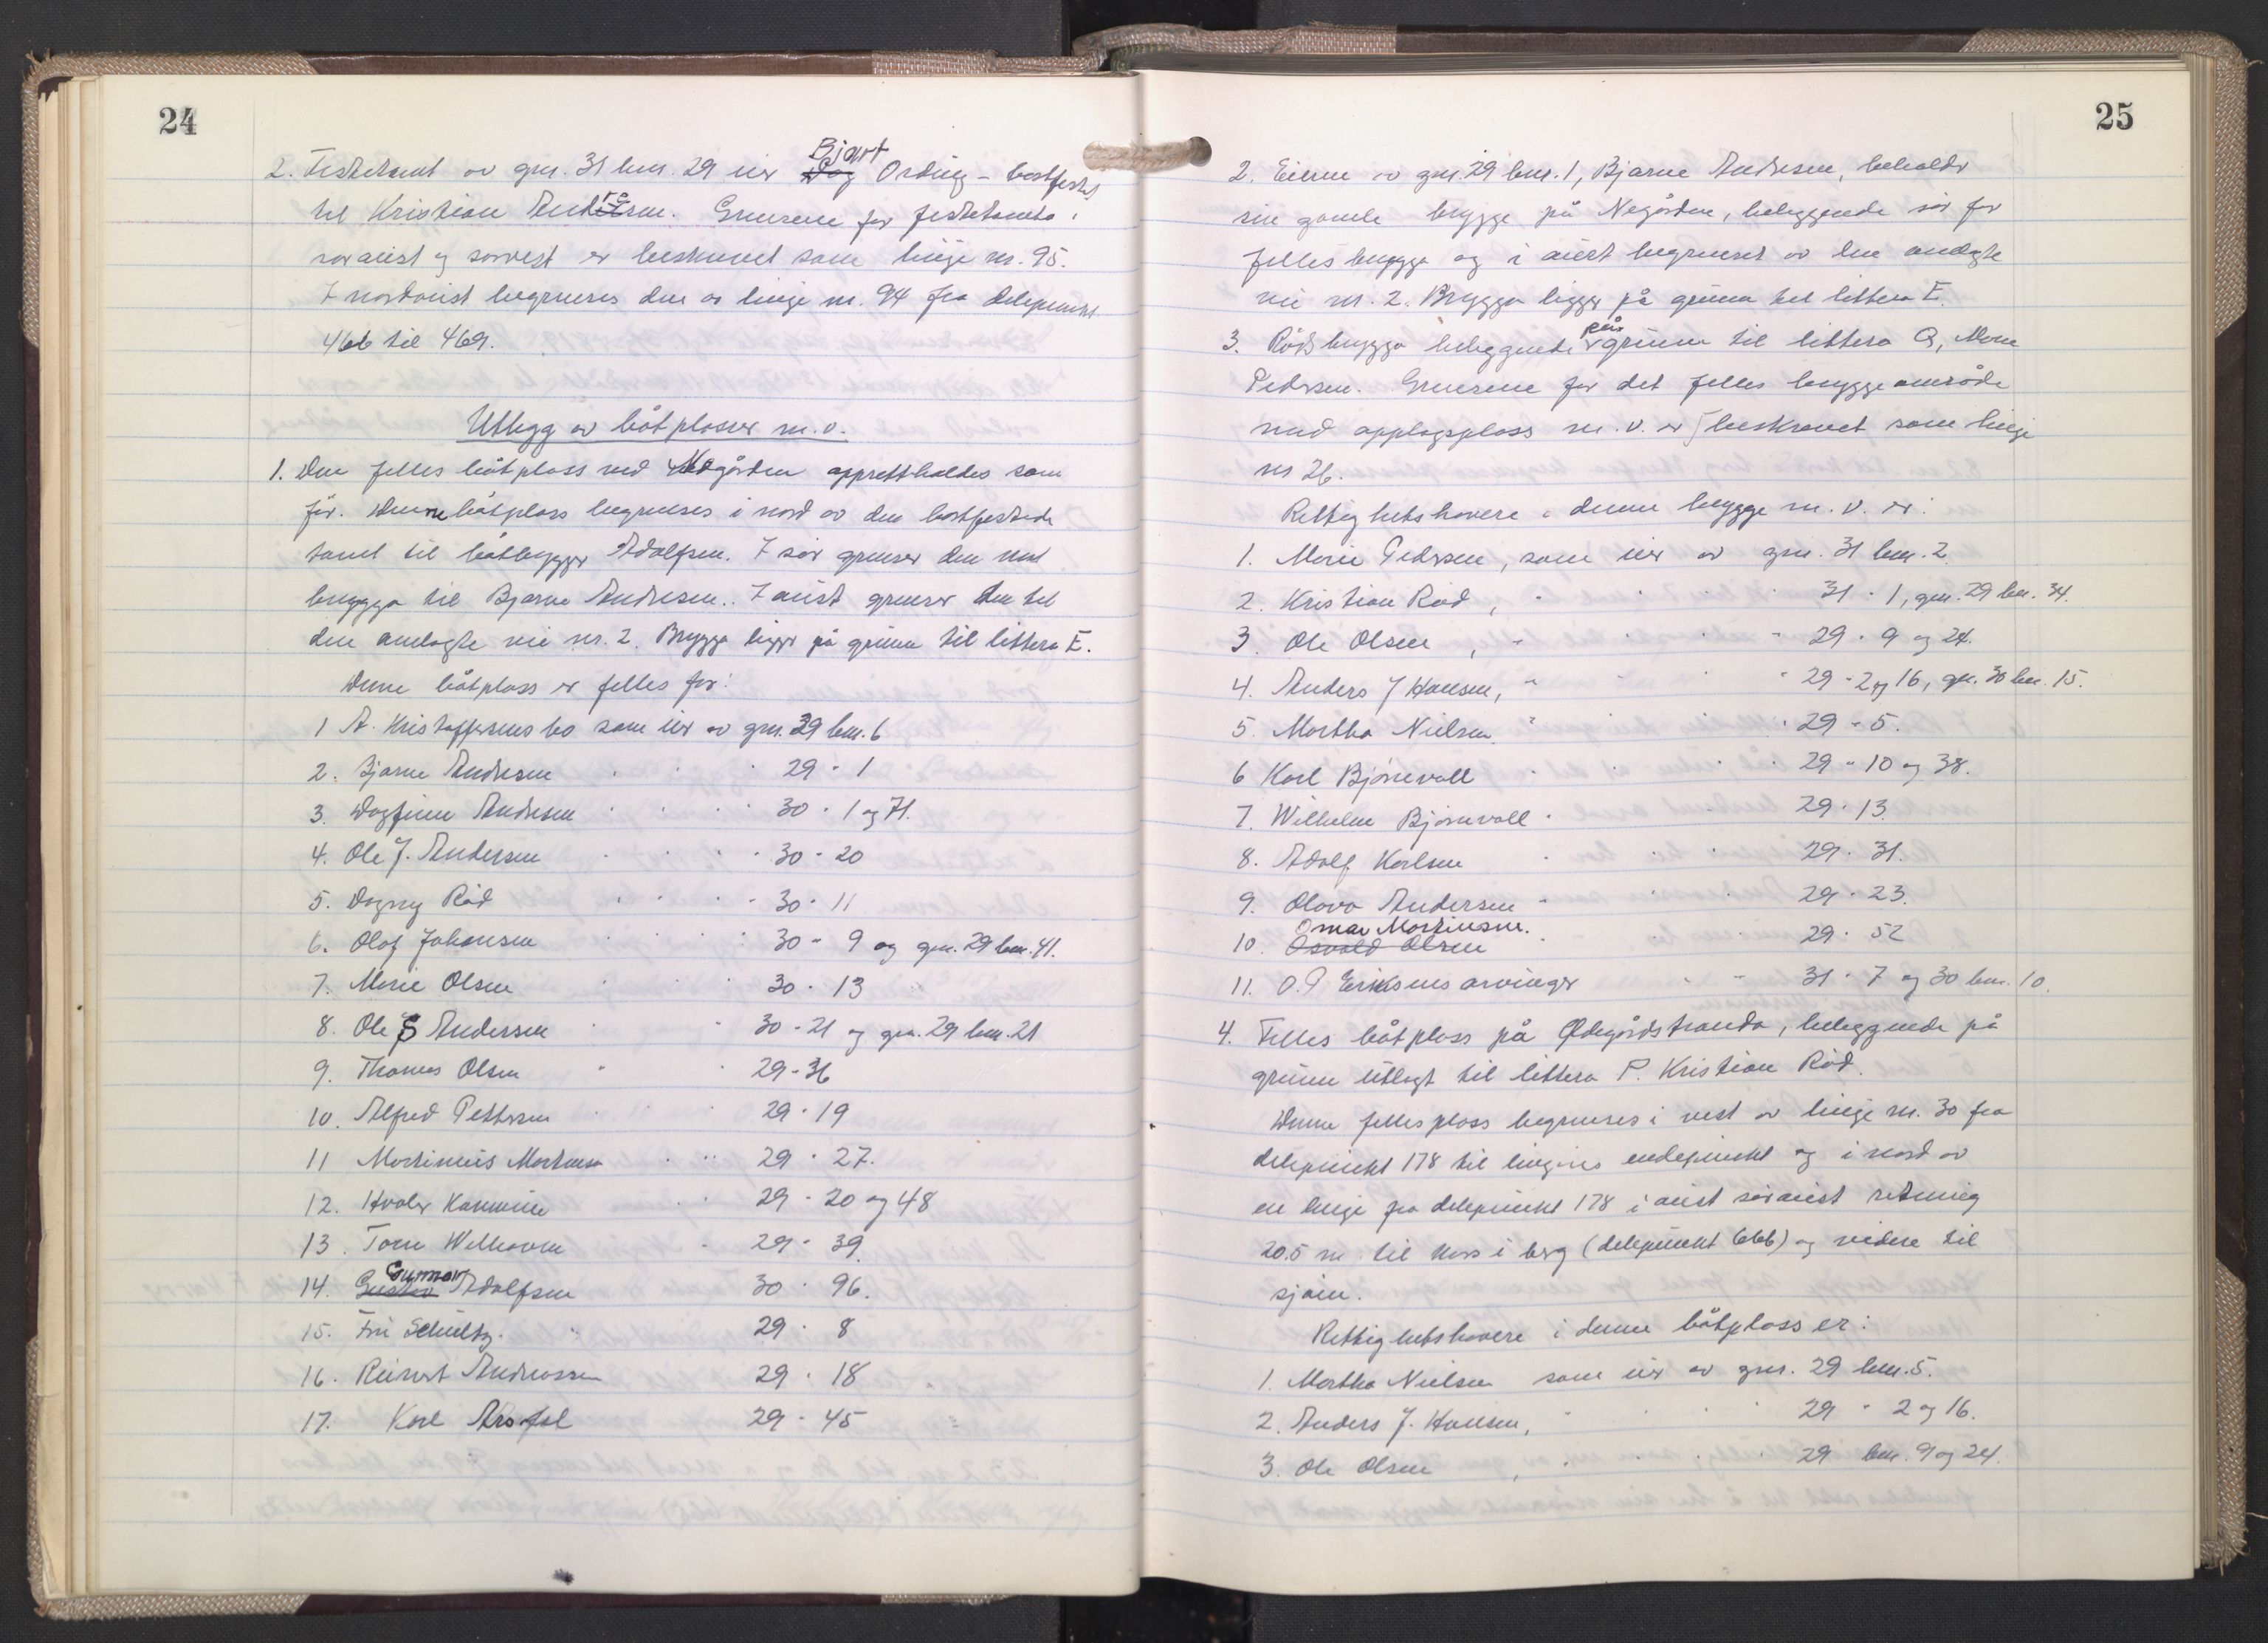 24
2. Festetomt av gnr. 31 bnr. 29 eier Dag Bjart Ording - bortfestet
til Kristian Andersen. Grensene for festetomta i
søraust og sørvest er beskrevet som linje nr. 95.
I nordaust begrenses den av linje nr. 94 fra delepunkt
466 til 469.
Utlegg av båtplasser m.v.
1. Den felles båtplass ved Nedgården opprettholdes som
før. Denne båtplass begrenses i nord av den bortfestede
tomt til båtbygger Adolfsen. I sør grenser den mot
brygga til Bjarne Andresen. I aust grenser den til
den anlagte vei nr. 2. Brygga ligger på grunn til littera E.
Denne båtplass er felles for:
1 A. Kristoffersens bo som eier av gnr. 29 bnr. 6
2. Bjarne Andresen " " " 29 " 1
3. Dagfinn Andresen " " " " 30 " 1 og 71.
4. Ole J. Andersen " " " " 30 " 20
5. Dagny Rød " " " " 30 " 11
6. Olaf Johansen " " " " 30 " 9 og gnr. 29 bnr. 41.
7. Marie Olsen " " " 30 " 13
8. Ole S Andersen " " 30 " 21 og gnr. 29 bnr. 21
9. Thomas Olsen " " 29 " 36
10. Alfred Pettersen " " " 29 " 19
11 Martinius Martinsen " " " 29 " 27.
12. Hvaler Kommune " " 29 " 20 og 48
13. Tom Wilhovon " 29 " 39
14. Gustav Gunnar Adolfsen 30 " 96.
15. Fru Schultz. " 29 " 8
16. Reinert Andreassen 29 " 18
17. Karl 29 " 45
25
2. Eieren av gnr. 29 bnr. 1, Bjarne Andresen, beholder
sin gamle brygge på Negården, beliggende sør for
felles brygge og i aust begrenset av den anlagte
vei nr. 2. Brygga ligger på grunn til littera E.
3. Rødsbrygga beliggende på grunn til littera Q, Marie
Pedersen. Grensene for det felles bryggeområde
med opplagsplass m.v. er beskrevet som linje
nr 26.
Rettighetshavere i denne brygge m.v. er:
1. Marie Pedersen, som eier av gnr. 31 bnr. 2.
2. Kristian Rød, " " " " 31 " 1, gnr. 29 bnr. 34.
3. Ole Olsen, " " " " 29 " 9 og 24.
4. Anders J Hansen, " " " " 29 " 2 og 16, gnr. 30 bnr. 15.
5. Martha Nielsen. " " 29 " 5.
6 Karl Bjørnevall " " " " 29 " 10 og 38.
7. Wilhelm Bjørnevall " " 29 " 13.
8. Adolf Karlsen " " " 29 " 31.
9. Olava Andersen " " " 29 " 23.
10. Osvald Olsen Omar Martinsen. " " 29 " 52
11. O.P Eriksens arvinger " " 31 " 7 og 30 bnr. 10.
4. Felles båtplass på Ødegårdstranda, beliggende på
grunn utlagt til littera P. Kristian Rød.
Denne fellesplass begrenses i vest av linje nr. 30 fra
delepunkt 178 til linjens endepunkt og i nord av
en linje fra delepunkt 178 i aust søraust retning
20.5 m. til kors i berg (delepunkt 666) og videre til
sjøen.
Rettighetshavere i denne båtplass er:
1. Martha Nielsen som eier av gnr. 29 bnr. 5.
2. Anders J. Hansen, " " " " 29 " 2 og 16.
3. Ole Olsen , " " " " 29 bnr. 9 og 24.